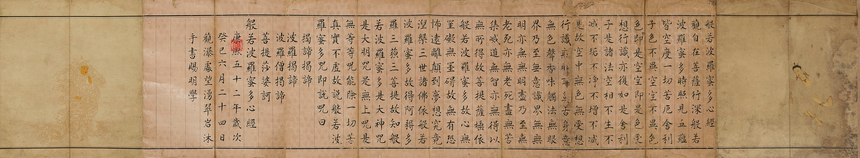 般若波羅蜜多心經
觀自在菩薩行深般若
波羅蜜多時照見五蘊
皆空度一切苦厄舍利
子色不異空空不異色
色即是空空即是色受
想行識亦復如是舍利
子是諸法空相不生不
滅不垢不淨不增不減
是故空中無色無受想
行識無眼耳鼻舌身意
無色聲香味觸法無眼
界乃至無意識界無無
明亦無無明盡乃至無
老死亦無老死盡無苦
集滅道無智亦無得以
無所得故菩提薩埵依
般若波羅蜜多故心無
罣礙無罣礙故無有恐
怖遠離顛倒夢想究竟
涅槃三世諸佛依般若
波羅蜜多故得阿耨多
羅三藐三菩提故知般
若波羅蜜多是大神呪
是大明呪是無上呪是
無等等呪能除一切苦
真實不虛故說般若波
羅蜜多呪即說呪曰
揭諦揭諦
波羅揭諦
波羅僧揭諦
菩提莎婆訶
般若波羅蜜多心經
康熙五十二年歲次
癸巳六月二十四日
龍瀑處堂湧翠岩沐
手書賜明學